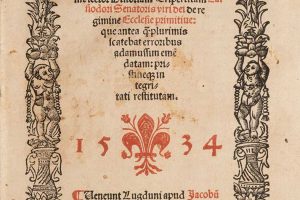 Historiam Tripertitam Cas
siodori Senatoris viri dei de re
gimine Ecclesie primitiue:
que antea q̃plurimis
scatebat erroribus
adamussim emẽ
datam: pri
stineqꝫ in
tegri
tati restitutam.
15 34
Ueneunt Lugduni apud Jacobũ